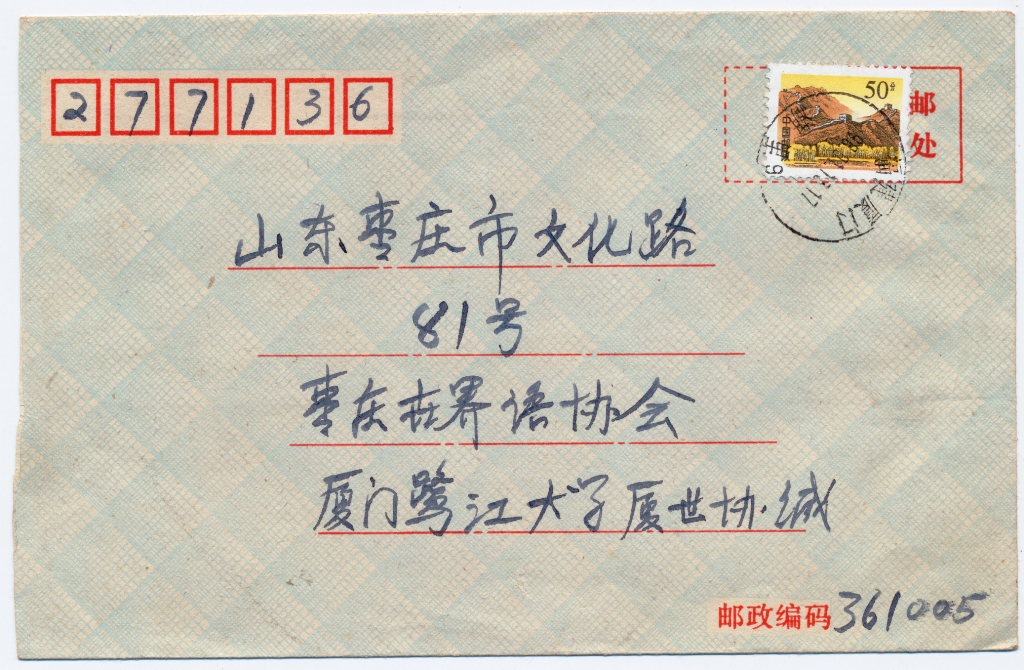 277136
50分
邮
处
山东枣庄市文化路
81号
枣庄世界语协会
厦门鹭江大学厦世协缄
邮政编码361005